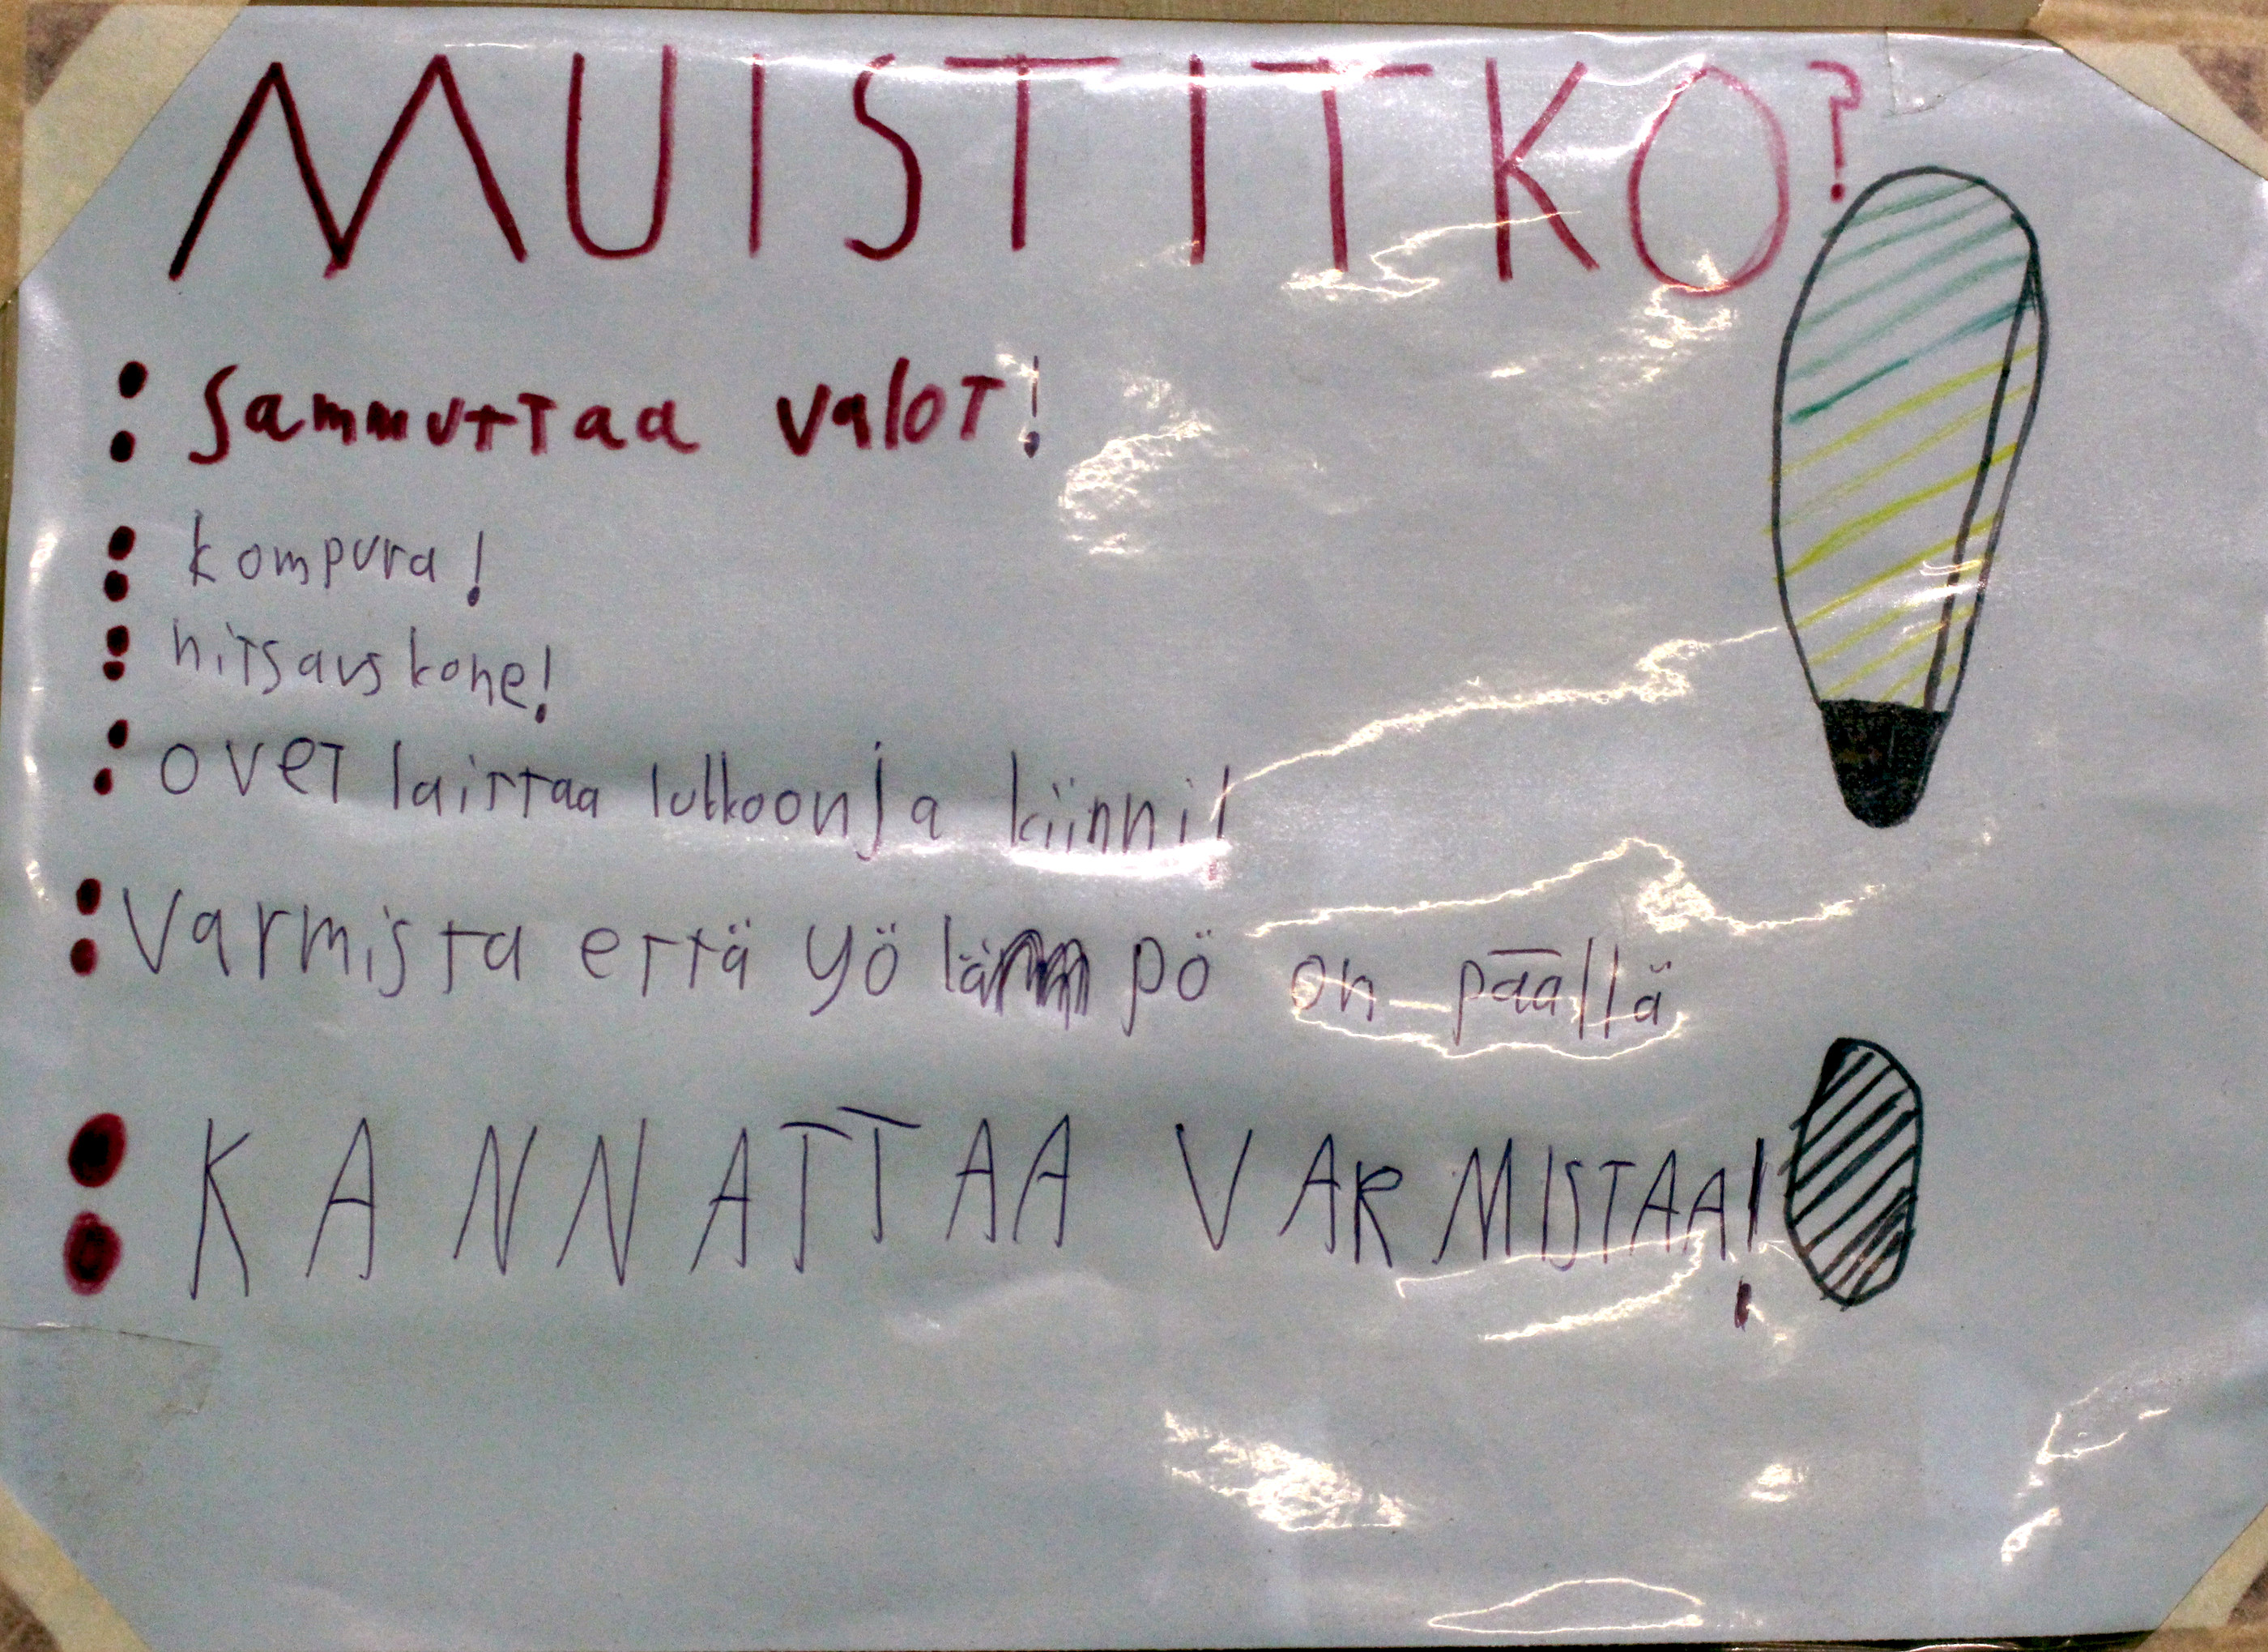 MUISTITKO?
: Sammuttaa valot!
: kompura!
: hitsauskone!
: ovet laittaa lukkoon ja kiinni!
: Varmista että yö lämpö on päällä
: KANNATTAA VARMISTAA!